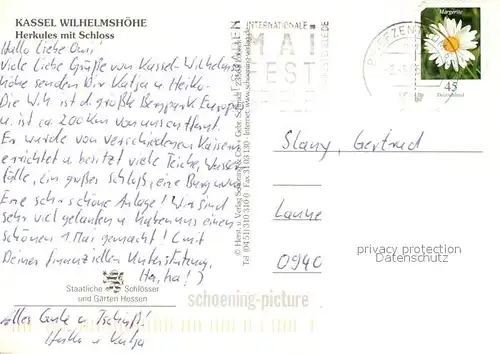 KASSEL WILHELMSHÖHE
Herkules mit Schloss
Hallo Liebe Omi!
Viele Liebe Grüße vom Kassel-Wilhelms-
höhe senden Dir Katja u. Heiko.
Die Wih. ist d. größte Bergpark Europas
u. ist ca. 200 km von uns entfernt.
Er wurde von verschiedenen Kaisern
errichtet u. besitzt viele Teiche, Wasser-
fälle, ein großes Schloß, eine Burg usw.
Eine sehr schöne Anlage! Wir sind
sehr viel gelaufen u. haben uns einen
schönen 1 Mai gemacht! (mit
Deiner finanziellen Unterstützung.
Ha, ha!)
Staatliche Schlösser
und Gärten Hessen
Alles Gute u. Tschüß!
Heiko u. Katja
© Horst u. Verlag Schöning & Co + Gebr. Schmidt
Tel (04 51) 310 310-0 Fax 31 03 130 · Internet: www.schoening-verlag.de
schoening-picture
INTERNATIONALE
MAI
FEST
BRIEFZENTRUM
Margerite
45
Deutschland
Slany, Gertrud
0940
privacy protection
Datenschutz